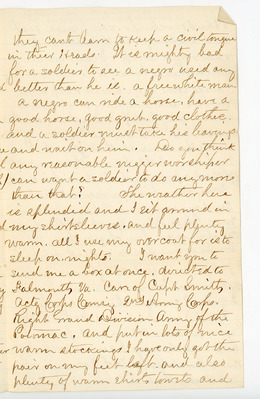 they cant learn to keep a civil tongue
in their Heads. It is mighty bad
for a soldier to see a negro used any
better than he is. a free white man
a negro can ride a horse, have a
good horse, good grub. good clothes.
and a soldier must take his leavings
and wait on him. Do you think
any reasonable nigger worshiper
can want a soldier to do any more
than that? The weather here
is splendid and I sit around in
my shirtsleeves. and feel plenty
warm. all I use my overcoat for is to
sleep on nights. I want you to
send me a box at once, directed to
Falmouth, Va. Care of Capt Smith.
Actg Corps Comsy. 2nd Army Corps.
Right Grand Division Army of the
Potomac. and put in lots of nice
warm stockings I have only got the
pair on my feet left. and also
plenty of warm shirts towels and